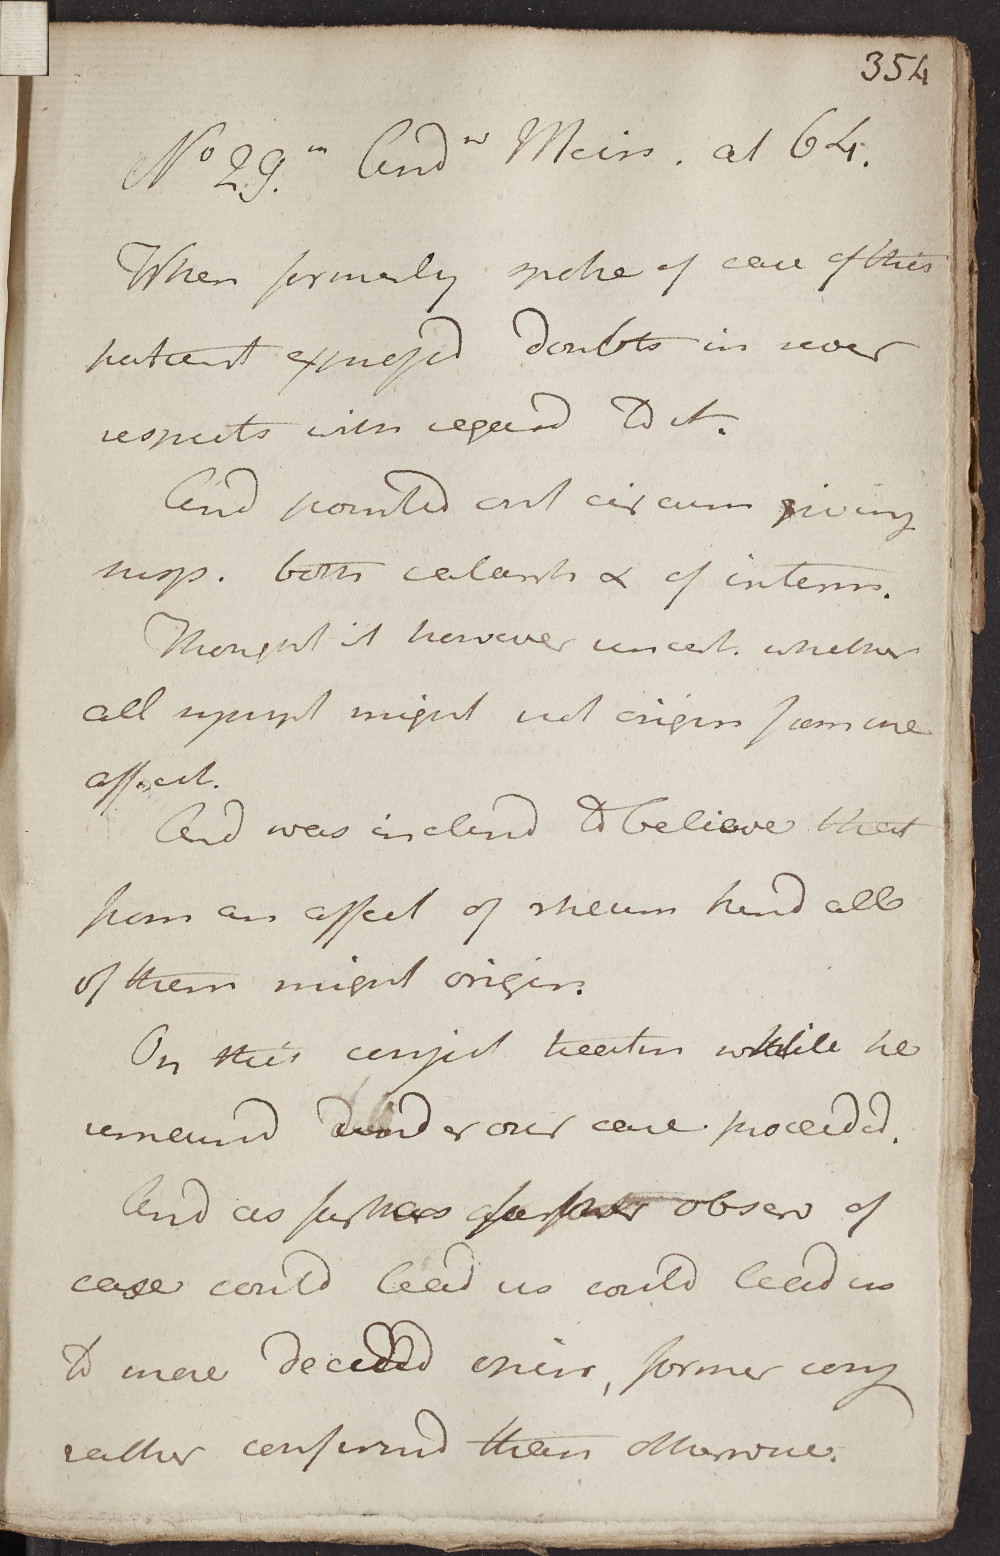 354
No 29. m Andw Mein. at 64.
When formerly spoke of case of this
patient expressd doubts in sever
respects with regard to it.
And pointed out circum giving
susp. both calculus & of intern.
Thought it however uncert. whether
all sympt might not origin from one
affect.
And was inclind to believe that
from an affect of rheum kind all
of them might origin.
On this conject treatm while he
remaind under our care proceedd.
And as far as farther observ of
case could lead us could lead us
to more decided opin, former conj
rather confirmd than otherwise.